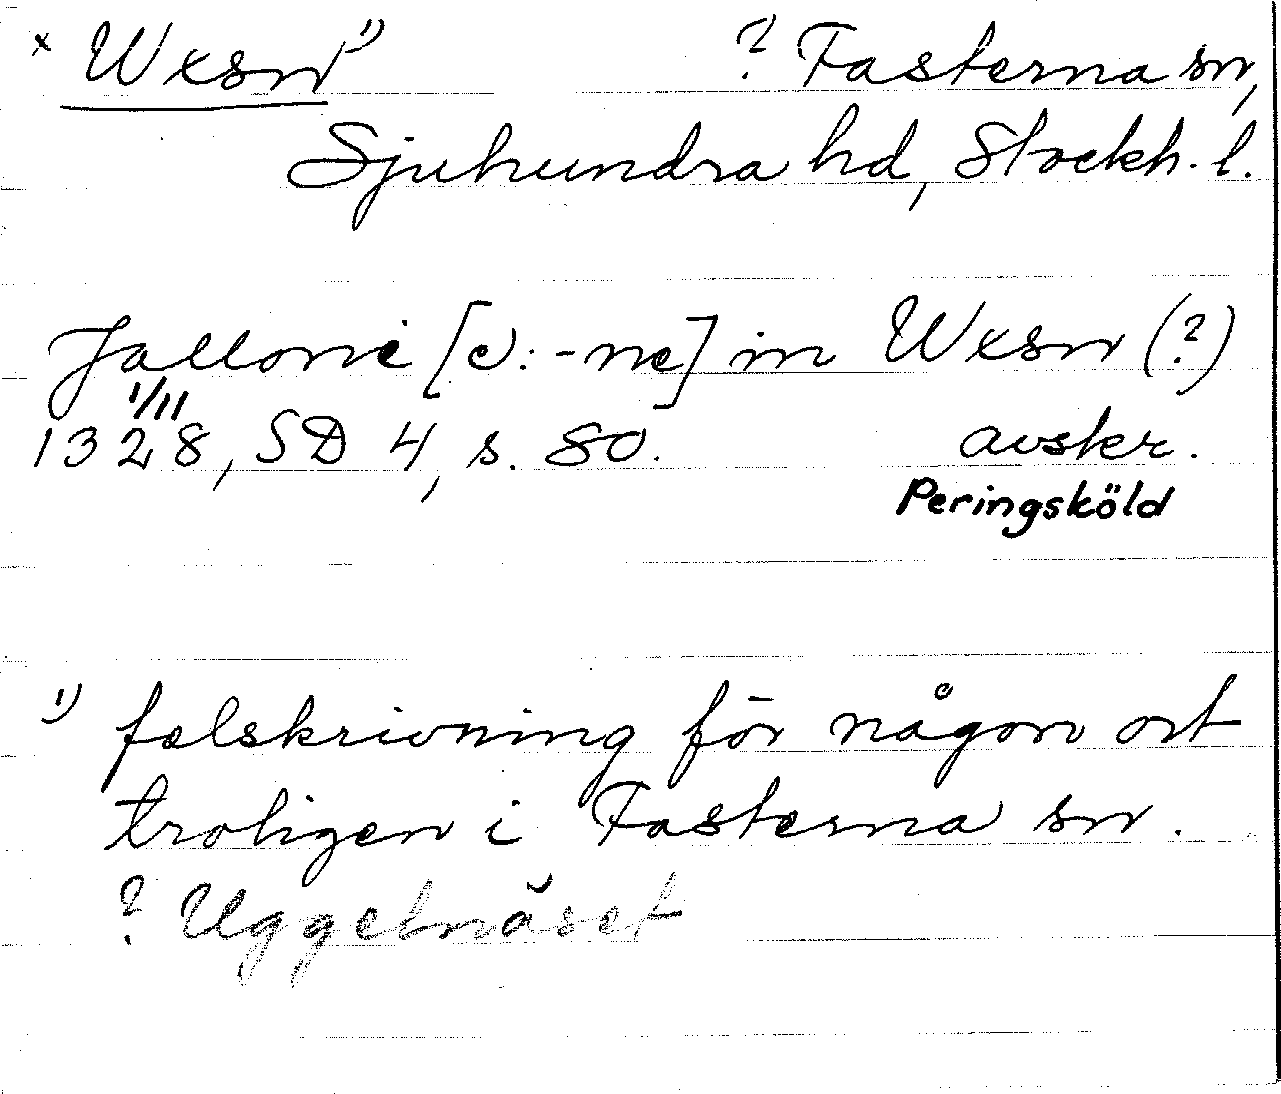 × Wxsn 1) ? Fasterna sn,
Sjuhundra hd, Stockh. l.
Jallone [ɔ: -ne] in Wxsn (?)
1/11
1328, SD 4, s. 80. avskr.
Peringsköld
1) felskrivning för någon ort
troligen i Fasterna sn.
? Uggelnäset